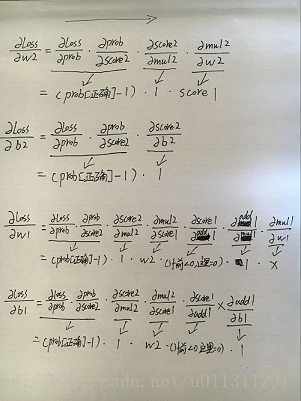 ∂Loss/∂w2 = ∂Loss/∂prob · ∂prob/∂score2 · ∂score2/∂mul2 · ∂mul2/∂w2
= (prob[正确]-1) · 1 · score1
∂Loss/∂b2 = ∂Loss/∂prob · ∂prob/∂score2 · ∂score2/∂b2
= (prob[正确]-1) · 1
∂Loss/∂w1 = ∂Loss/∂prob · ∂prob/∂score2 · ∂score2/∂mul2 · ∂mul2/∂score1 · ∂score1/∂add1 · ∂add1/∂mul1 · ∂mul1/∂w1
= (prob[正确]-1) · 1 · w2 · (1前<0,这里=0) · 1 · x
∂Loss/∂b1 = ∂Loss/∂prob · ∂prob/∂score2 · ∂score2/∂mul2 · ∂mul2/∂score1 · ∂score1/∂add1 × ∂add1/∂b1
= (prob[正确]-1) · 1 · w2 · (1前<0,这里=0) · 1
csdn.net/u011311291